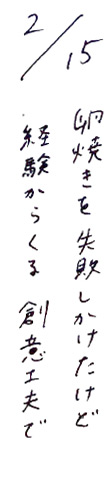 2/15
卵焼きを失敗しかけたけど
経験からくる創意工夫で